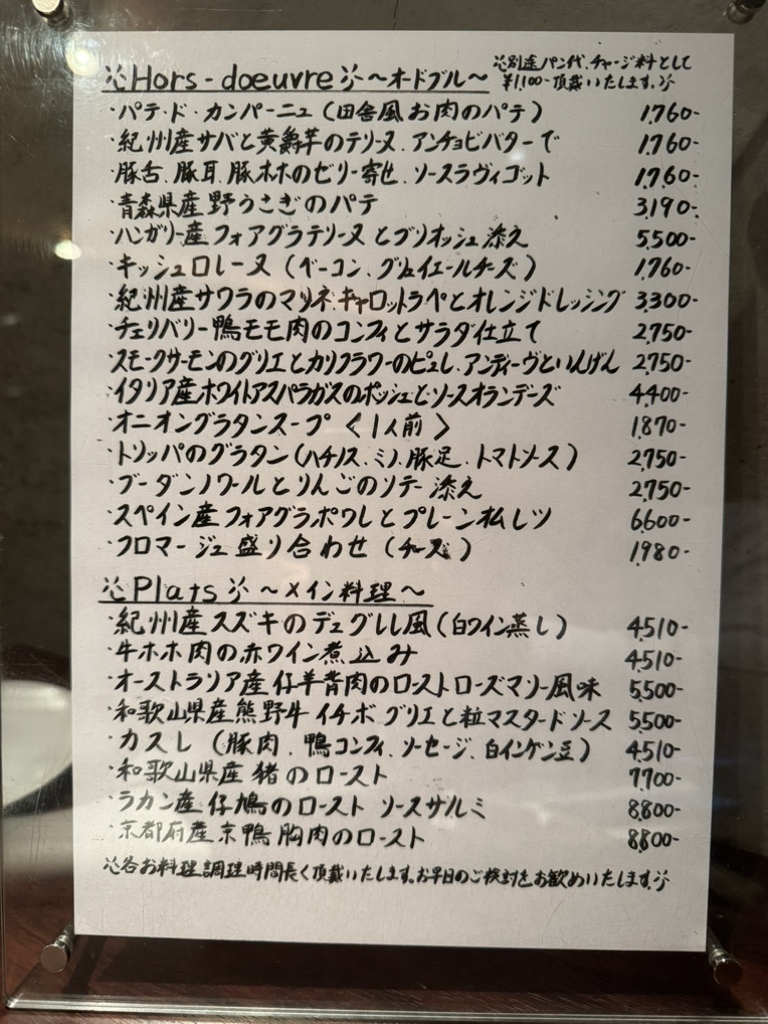 ※Hors-doeuvre※ ~オードブル~
※別途パン代、チャージ料として
¥1,100-頂戴いたします。※
・パテ・ド・カンパーニュ(田舎風お肉のパテ) 1,760-
・紀州産サバと黄爵芋のテリーヌ、アンチョビバターで 1,760-
・豚舌、豚耳、豚ホホのゼリー寄せ、ソースラヴィゴット 1,760-
・青森県産野うさぎのパテ 3,190-
・ハンガリー産フォアグラテリーヌとブリオッシュ添え 5,500-
・キッシュロレーヌ(ベーコン、グリュイエールチーズ) 1,760-
・紀州産サワラのマリネ、キャロットラペとオレンジドレッシング 3,300-
・チェリバリー鴨モモ肉のコンフィとサラダ仕立て 2,750-
・スモークサーモンのグリエとカリフラワーのピュレ、アンディーヴといんげん 2,750-
・イタリア産ホワイトアスパラガスのポッシェとソースオランデーズ 4,400-
・オニオングラタンスープ〈1人前〉 1,870-
・トリッパのグラタン(ハチノス、ミノ、豚足、トマトソース) 2,750-
・ブーダンノワールとりんごのソテー添え 2,750-
・スペイン産フォアグラポワレとプレーン払レツ 6,600-
・フロマージュ盛り合わせ(チーズ) 1,980-
※Plats※ ~メイン料理~
・紀州産スズキのデュグレレ風(白ワイン蒸し) 4,510-
・牛ホホ肉の赤ワイン煮込み 4,510-
・オーストラリア産仔羊背肉のローストローズマリー風味 5,500-
・和歌山県産熊野牛イチボ グリエと粒マスタードソース 5,500-
・カスレ(豚肉、鴨コンフィ、ソーセージ、白インゲン豆) 4,510-
・和歌山県産猪のロースト 7,700-
・ラカン産仔鳩のロースト ソースサルミ 8,800-
・京都府産京鴨胸肉のロースト 8,800-
※各お料理調理時間長く頂戴いたします。お早目のご検討をお勧めいたします。※